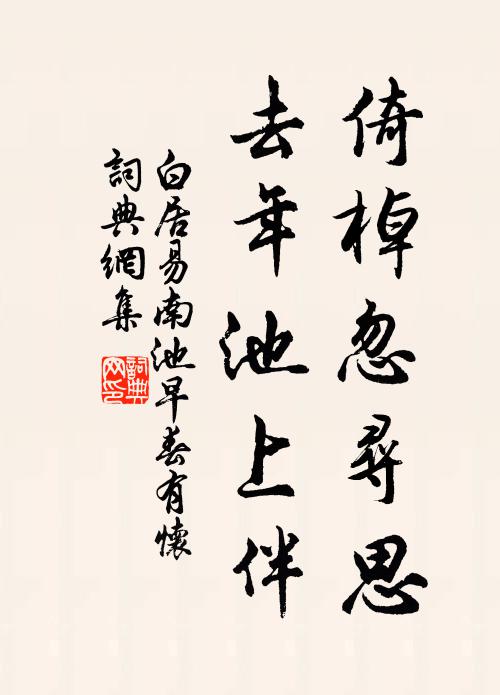 倚棹忽尋思
去年池上伴
白居易南池早春有懷
詞典網集
詞典
网印